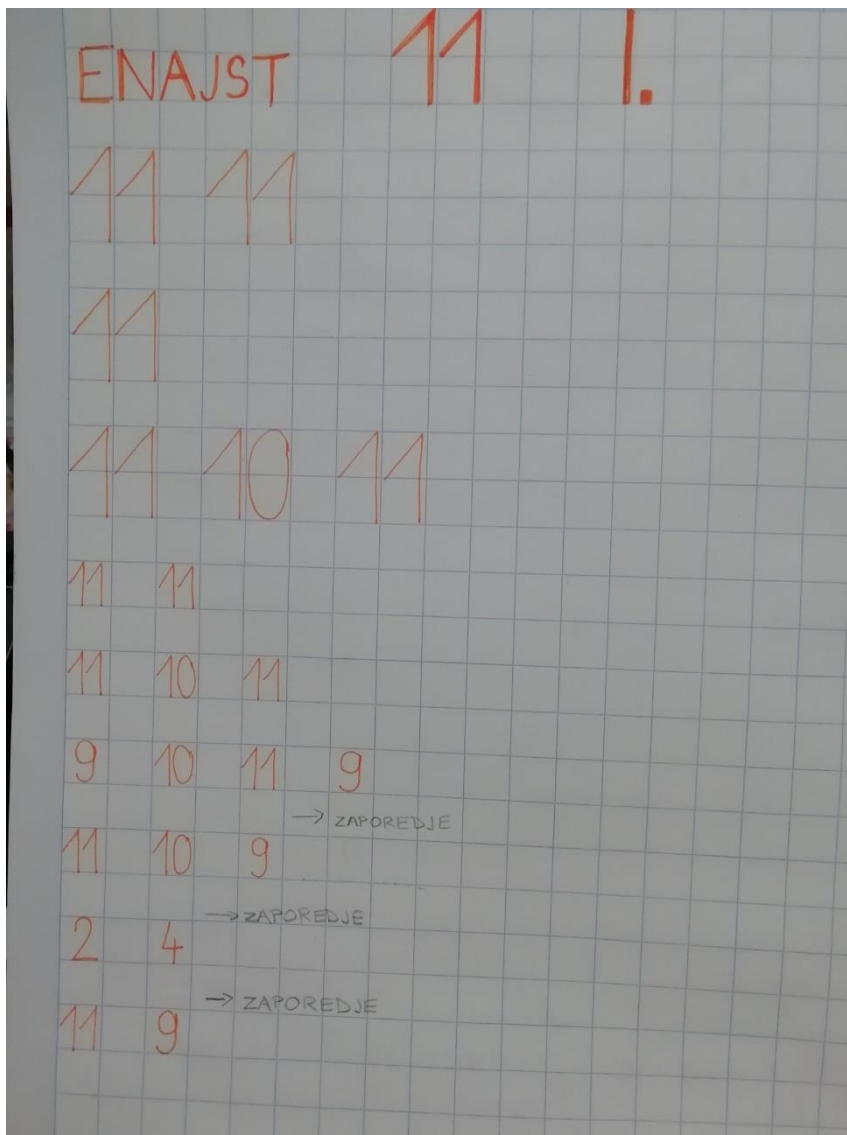 ENAJST 11 1.
11 11
11
11 10 11
11 11
11 10 11
9 10 11 9
→ ZAPOREDJE
11 10 9
→ ZAPOREDJE
2 4
→ ZAPOREDJE
11 9